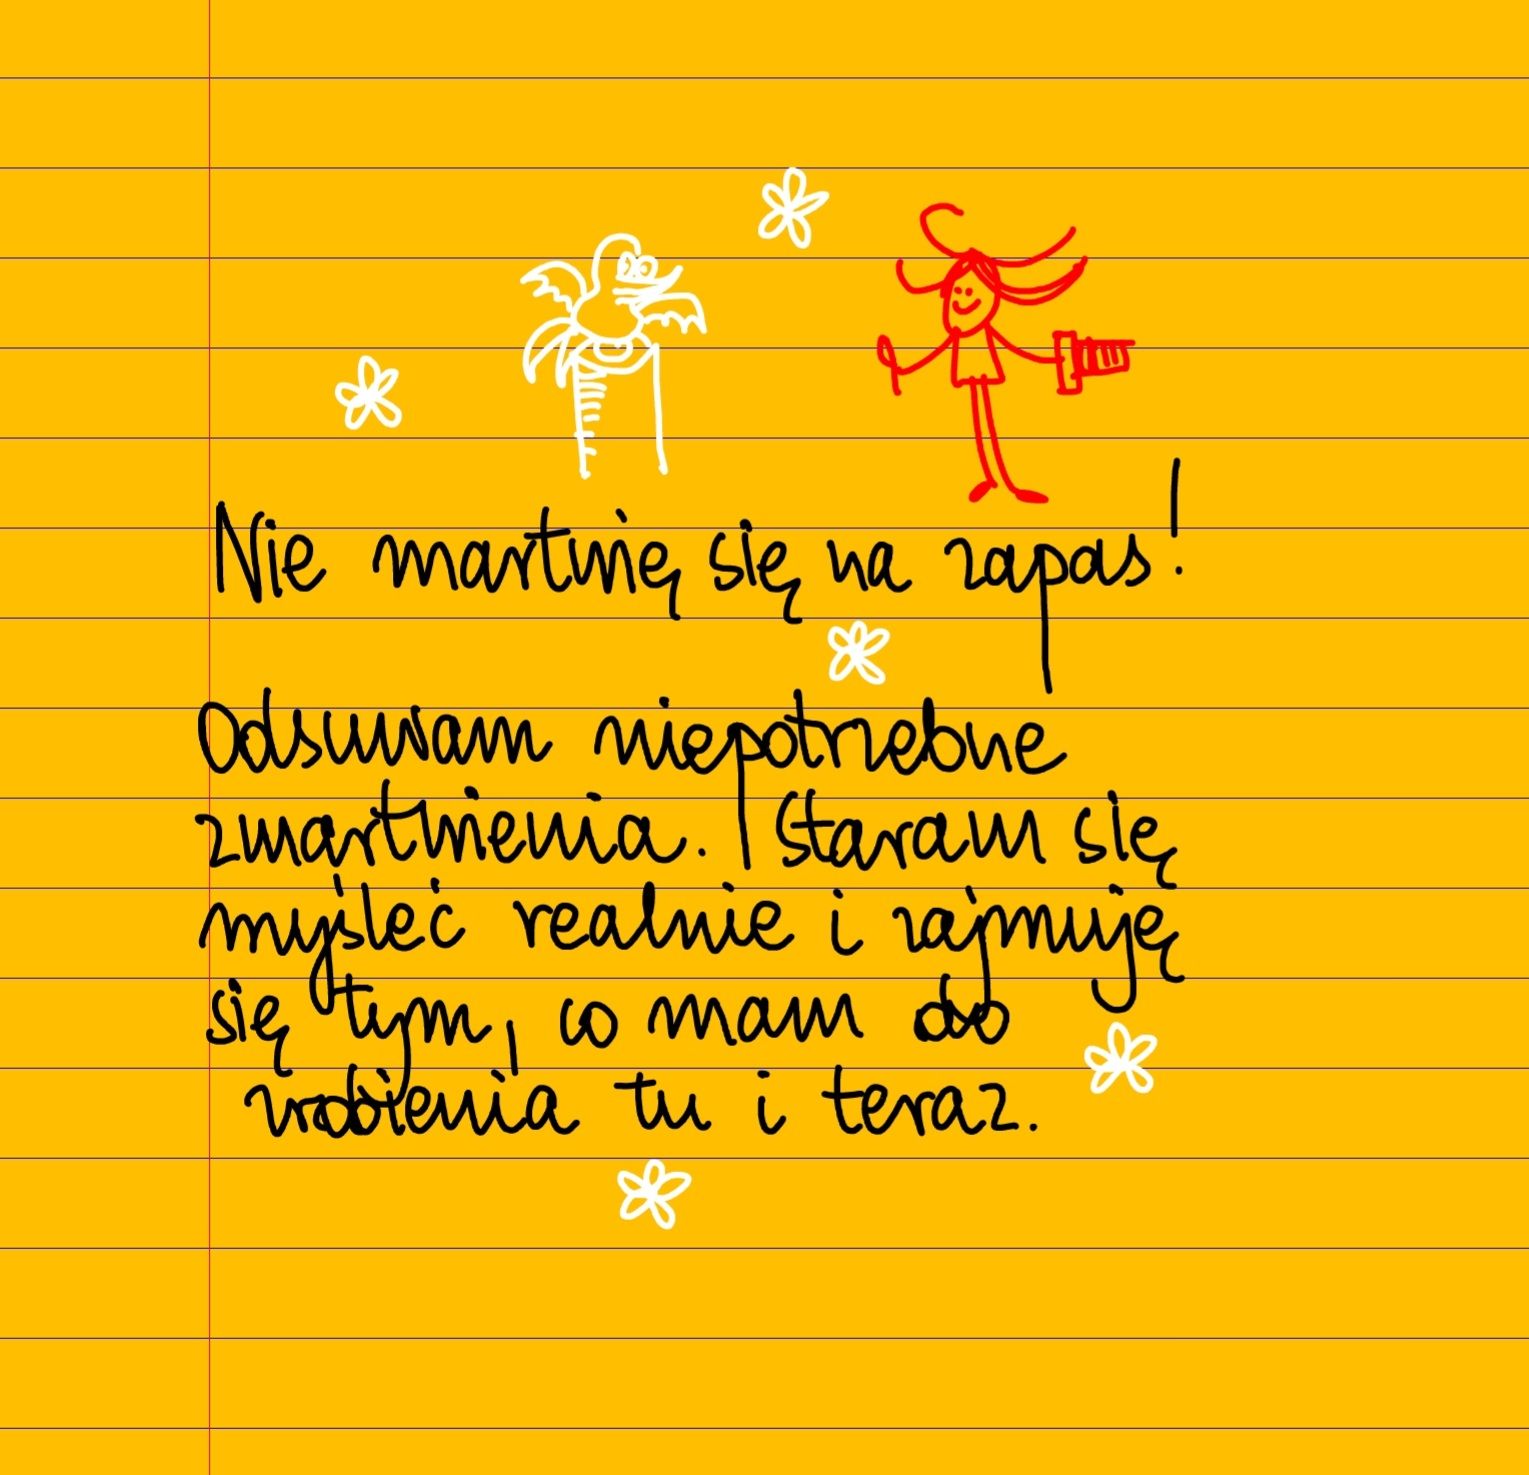 Nie martwię się na zapas!
Odsuwam niepotrzebne
zmartwienia. Staram się
myśleć realnie i zajmuję
się tym, co mam do
zrobienia tu i teraz.